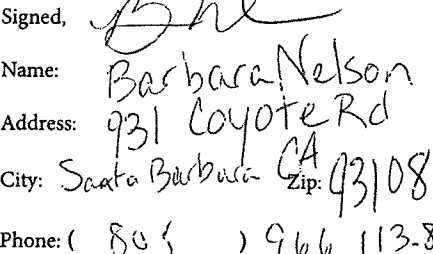 Signed,
Name: Barbara Nelson
Address: 931 Coyote Rd
City: Santa Barbara CA Zip: 93108
Phone: ( 805 ) 966 113-8